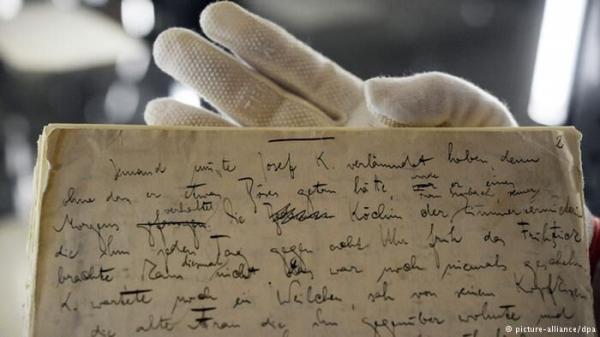 2
Jemand mußte Josef K. verläumdet haben denn
ohne daß er etwas Böses getan hätte, wurde er eines
Morgens verhaftet. Die Köchin der Zimmervermieterin
die ihm jeden Tag gegen acht Uhr früh das Frühstück
brachte kam diesmal nicht. Das war noch niemals geschehn.
K. wartete noch ein Weilchen, sah von seinem Kopfkissen
die alte Frau die ihm gegenüber wohnte und
© picture-alliance/dpa